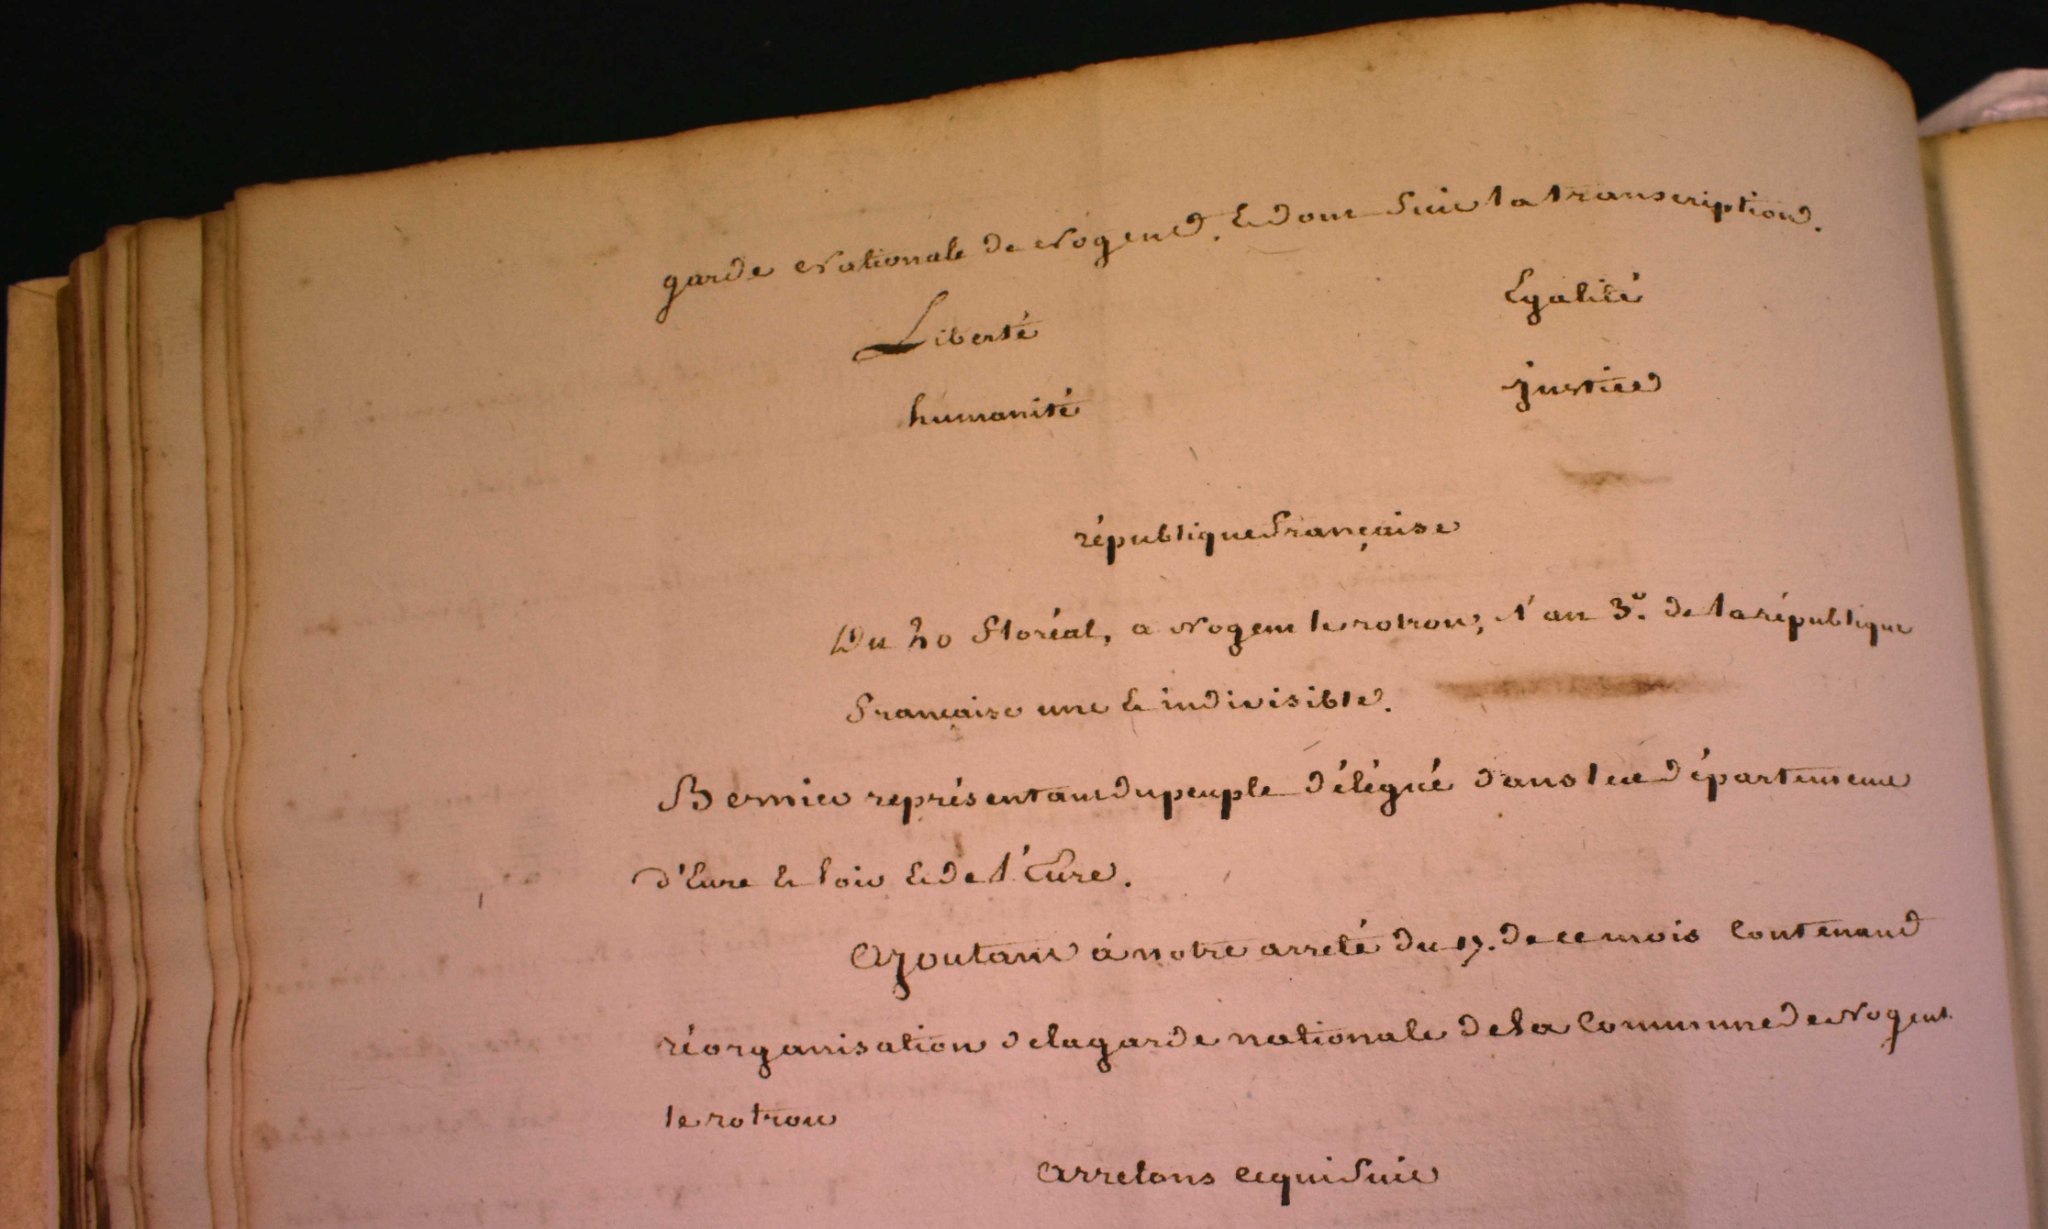 garde Nationale de Nogent. & dont suit la transcription.
Liberté Egalité
humanité justice
république française
Du 20 floréal, a Nogent le rotrou, l'an 3e. de la république
française une & indivisible.
Bernier représentant du peuple délégué dans les départements
d'Eure & loir & de l'Eure.
Ajoutant à notre arreté du 17. de ce mois contenant
réorganisation de la garde nationale de la Commune de Nogent
le rotrou
Arretons ce qui suit